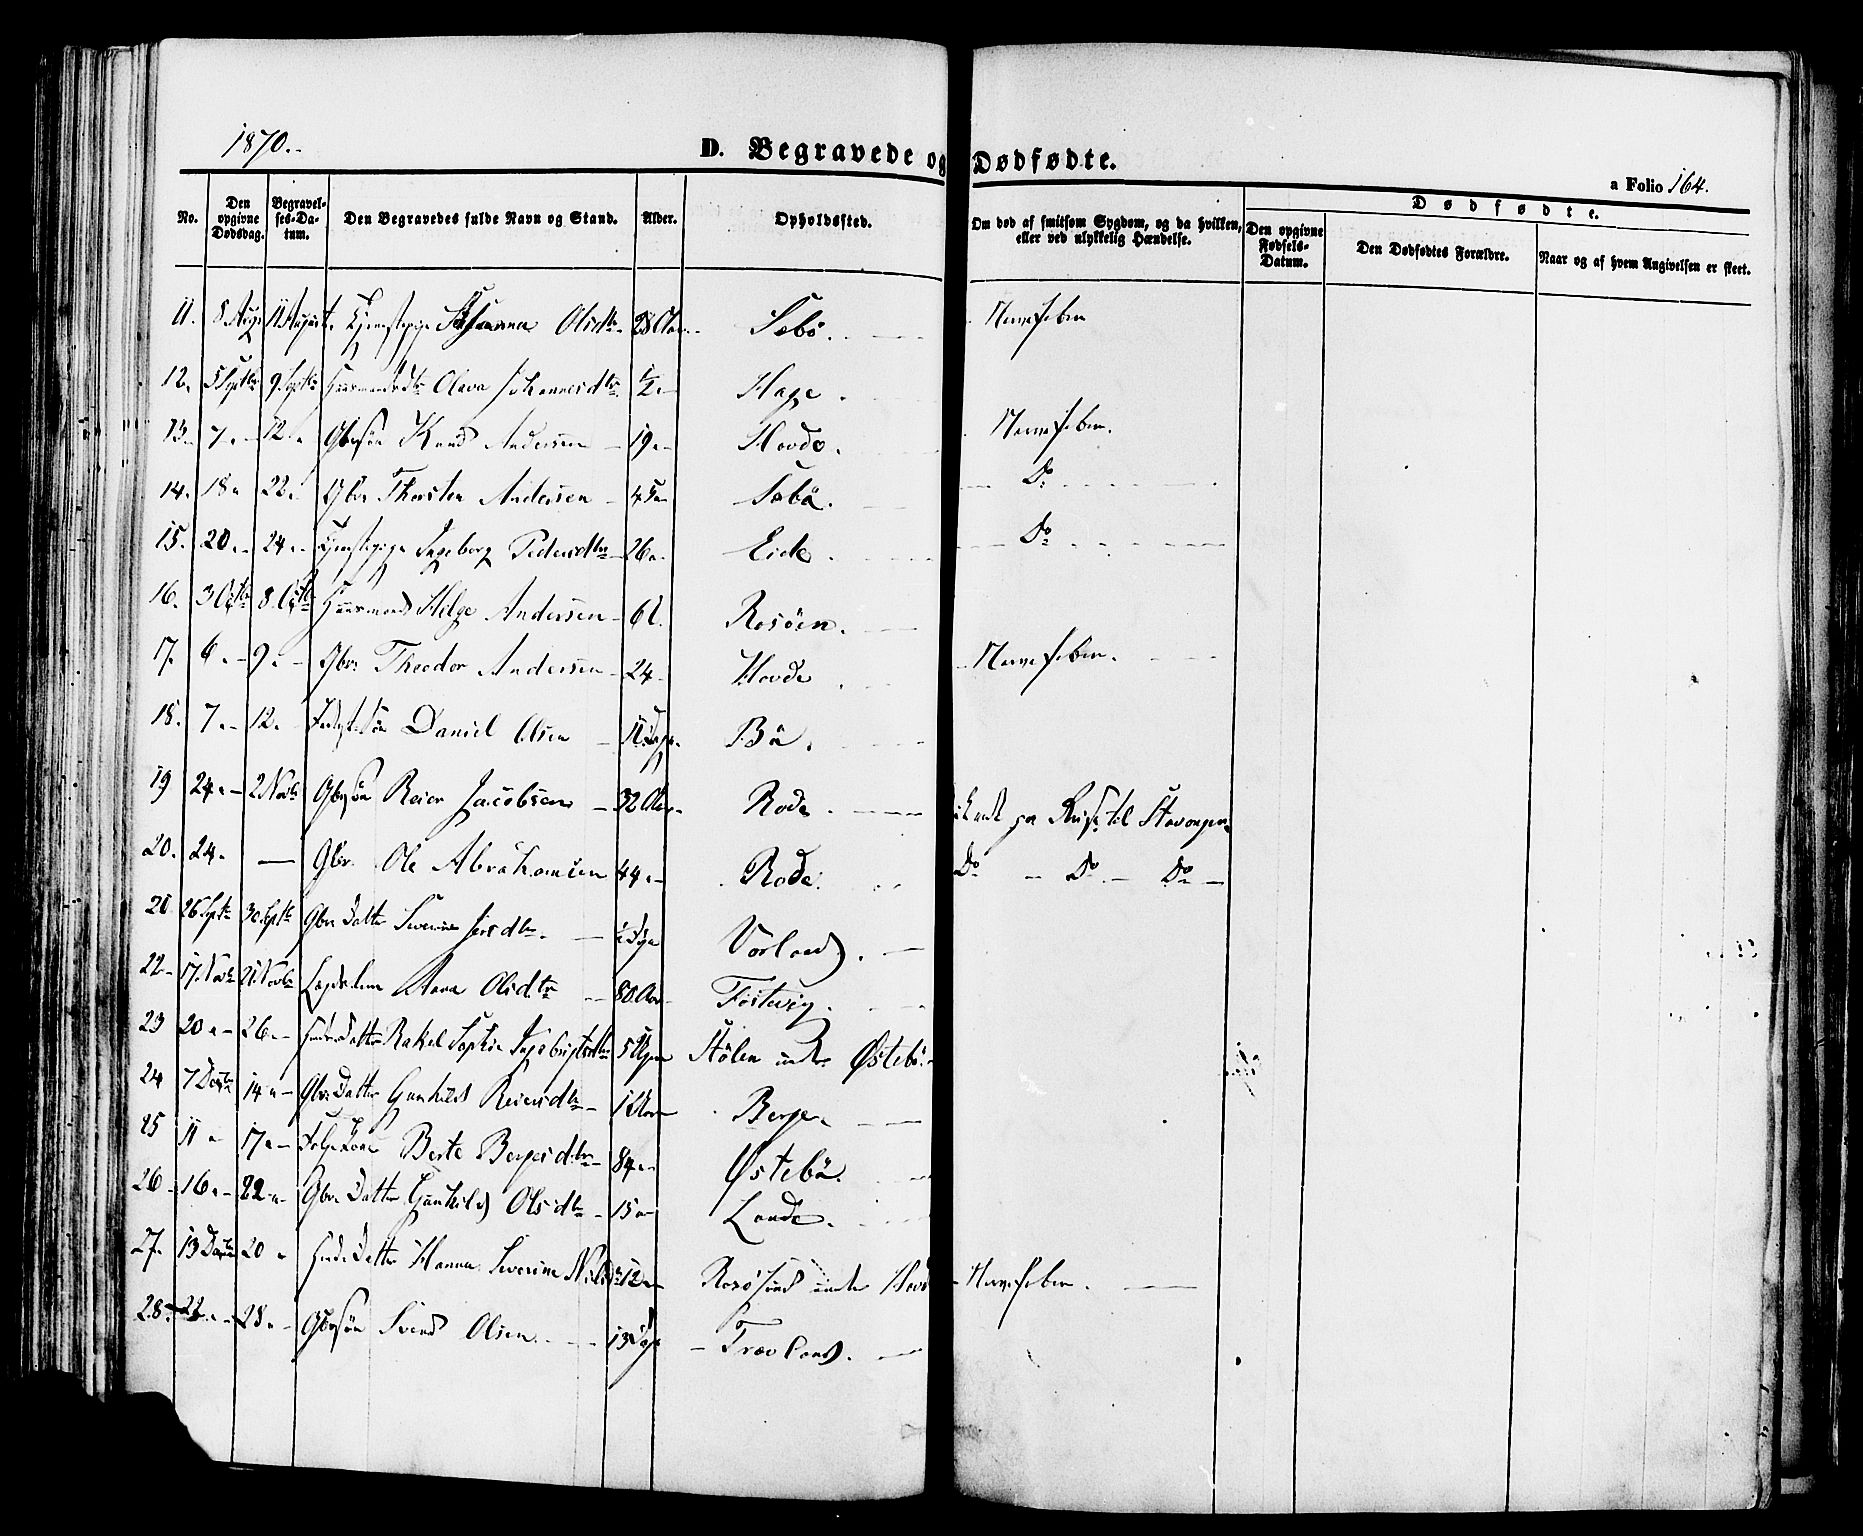 1870.
D. Begravede og Dødfødte.
a Folio 164.
No. Den opgivne Dødsdag. Begravelses-Datum. Den Begravedes fulde Navn og Stand. Alder. Opholdssted. Om død af smitsom Sygdom, og da hvilken, eller ved ulykkelig Hændelse. Dødfødte. Den opgivne Fødsels-Datum. Den Dødfødtes Forældre. Naar og af hvem Angivelsen er skeet.
11. 8 Aug. 11 August. Tjenestepige Olsdtr. 28 Aar. Sebö. Nervefeber
12. 5 Septbr 9. Septbr Huusmands Dtr Olava Johannesdtr. ½ " Hage.
13. 7 " 12 " Gbrsön Knud Andersen 19 " Hovde. Nervefeber.
14. 18 " 22 " Gbr. Thorsten Andersen Sebö. Do
15. 20 " 24 " Tjenestepige Ingeborg Pedersdtr 26 " Eide. Do
16. 3 Octbr 8. Octbr Huusmand Helge Andersen Rosöen.
17. 6 " 9 " Gbr. Theodor Andersen 24 Hovde Nervefeber.
18. 7 " 12 " Daniel Olsen Dage. Bö.
19 24 " 2 Novbr Gbrsön Reier Jacobsen 32 Aar. Rode. paa Reise til Stavanger
20. 24 " — Gbr. Ole Abrahamsen 44 " Rode. Do Do Do
20 26 Septbr 30. Septbr Gbr Datter Severine Vorland.
22 17. Novbr 21. Novbr Lægdslem Anna Olsdtr 80 Aar
23 20 " 26 " Datter Rakel Sophie 5 Uger Stölen under Östebö.
24 7 Decbr 14 " Gbr Datter Gunhild Reiersdtr Aar Berge
25 11 " 17 " Berte Bergesdtr 84 " Østebö.
26 16 " 22 " Gbr Datter Gunhild Olsdtr 15 " Lande.
27. 13 Decbr 20 " Datter Hanna Severine 12 " under Hovde Nervefeber.
28. 22 " 28 " Gbrsön Svend Olsen 13 Dage Trovland.